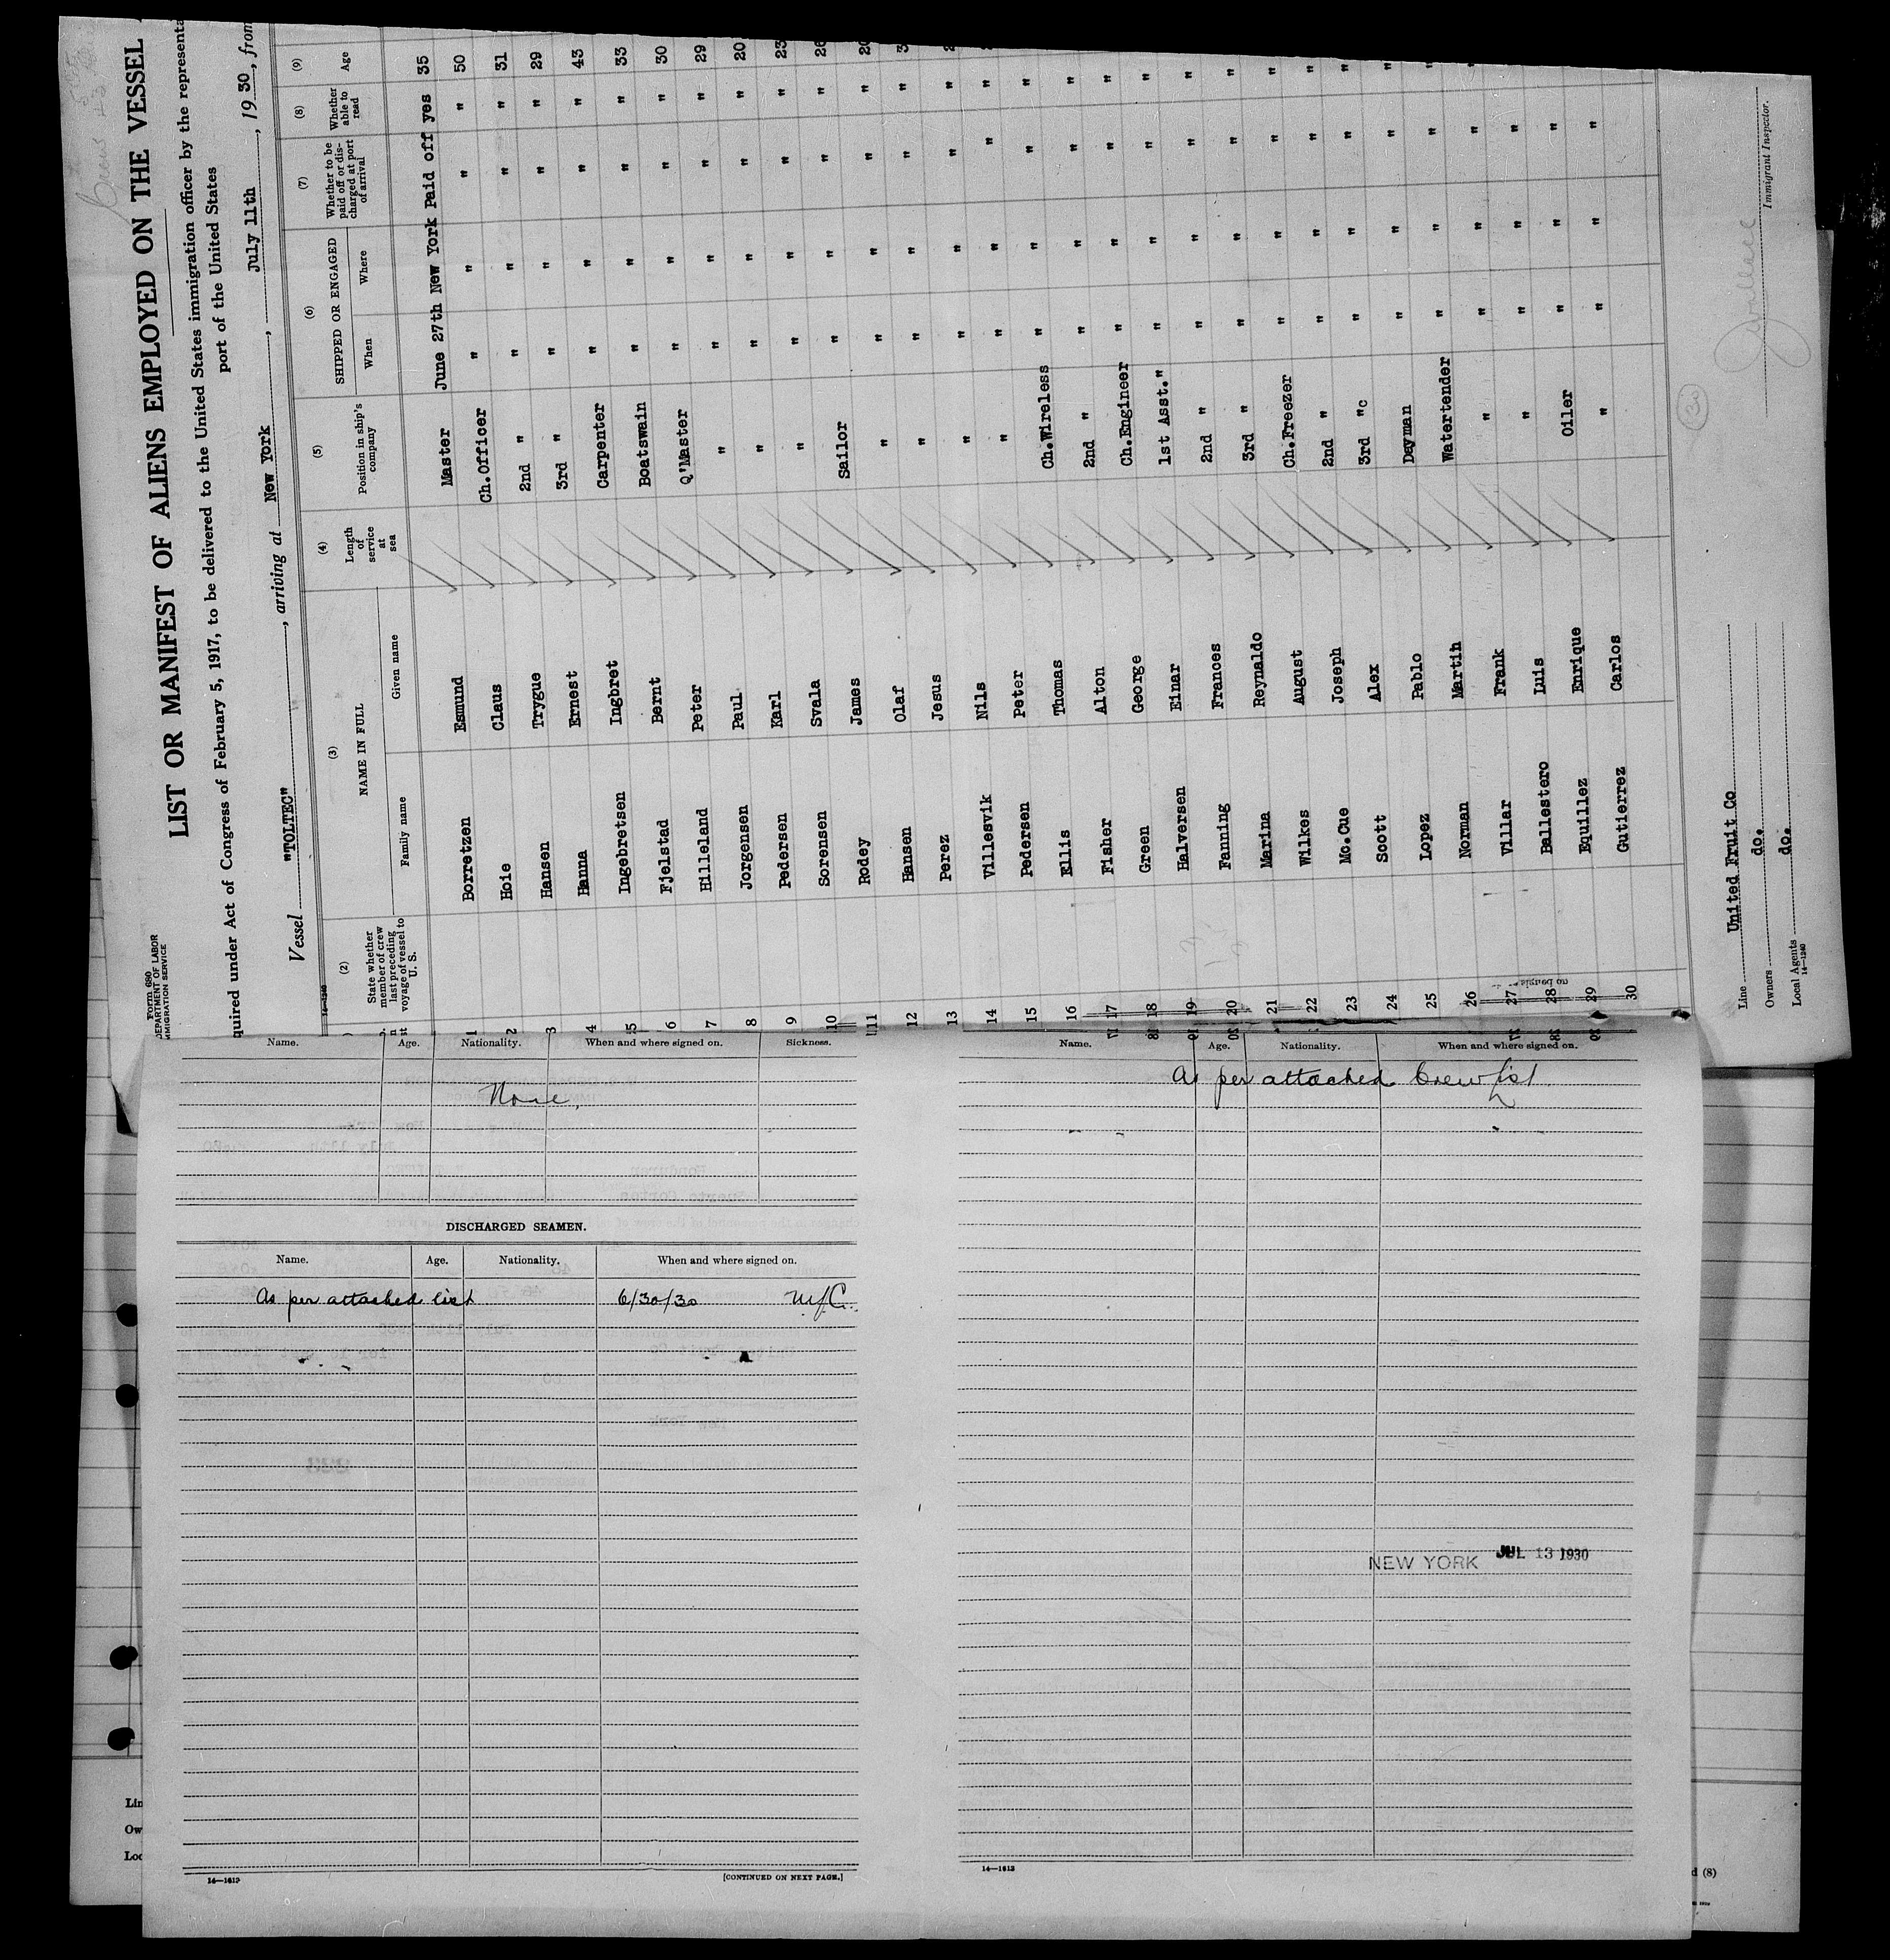 Form 680
DEPARTMENT OF LABOR
IMMIGRATION SERVICE
LIST OR MANIFEST OF ALIENS EMPLOYED ON THE VESSEL
quired under Act of Congress of February 5, 1917, to be delivered to the United States immigration officer by the representa
port of the United States
Vessel "TOLTEC", arriving at New York, July 11th, 1930, from
(2) (3) (4) (5) (6) (7) (8) (9)
State whether member of crew last preceding voyage of vessel to U. S.
NAME IN FULL
Family name Given name
Length of service at sea
Position in ship's company
SHIPPED OR ENGAGED
When Where
Whether to be paid off or discharged at port of arrival
Whether able to read
Age
1 Borretzen Esmund Master June 27th New York Paid off yes 35
2 Hoie Claus Ch.Officer " " " " 50
3 Hansen Trygue 2nd " " " " " 31
4 Hanna Ernest 3rd " " " " " 29
5 Ingebretsen Ingbret Carpenter " " " " 43
6 Fjelstad Bernt Boatswain " " " " 33
7 Hilleland Peter Q'Master " " " " 30
8 Jorgensen Paul " " " " " 29
9 Pedersen Karl " " " " " 20
10 Sorensen Svala " " " " " 23
11 Rodey James Sailor " " " " 26
12 Hansen Olaf " " " " " 20
13 Perez Jesus " " " " "
14 Villesvik Nils " " " " "
15 Pedersen Peter " " " " "
16 Ellis Thomas Ch.Wireless " " " "
17 Fisher Alton 2nd " " " " "
18 Green George Ch.Engineer " " " "
19 Halversen Einar 1st Asst." " " " "
20 Fanning Frances 2nd " " " " "
21 Marina Reynaldo 3rd " " " " "
22 Wilkes August Ch.Freezer " " " "
23 Mc.Cue Joseph 2nd " " " " "
24 Scott Alex 3rd "c " " " "
25 Lopez Pablo Dayman " " " "
26 Norman Martin Watertender " " " "
27 Villar Frank " " " " "
28 Ballestero Luis " " " " "
29 Equillez Enrique Oiler " " " "
30 Gutierrez Carlos " " " "
Line United Fruit Co
Owners do.
Local Agents do.
14—1240
Immigrant Inspector.
30
Name. Age. Nationality. When and where signed on. Sickness.
None.
DISCHARGED SEAMEN.
Name. Age. Nationality. When and where signed on.
As per attached list 6/30/30
14—1613
[CONTINUED ON NEXT PAGE.]
Name. Age. Nationality. When and where signed on.
As per attached Crew List
NEW YORK JUL 13 1930
14—1613
Lin
Ow
Loc
d (8)